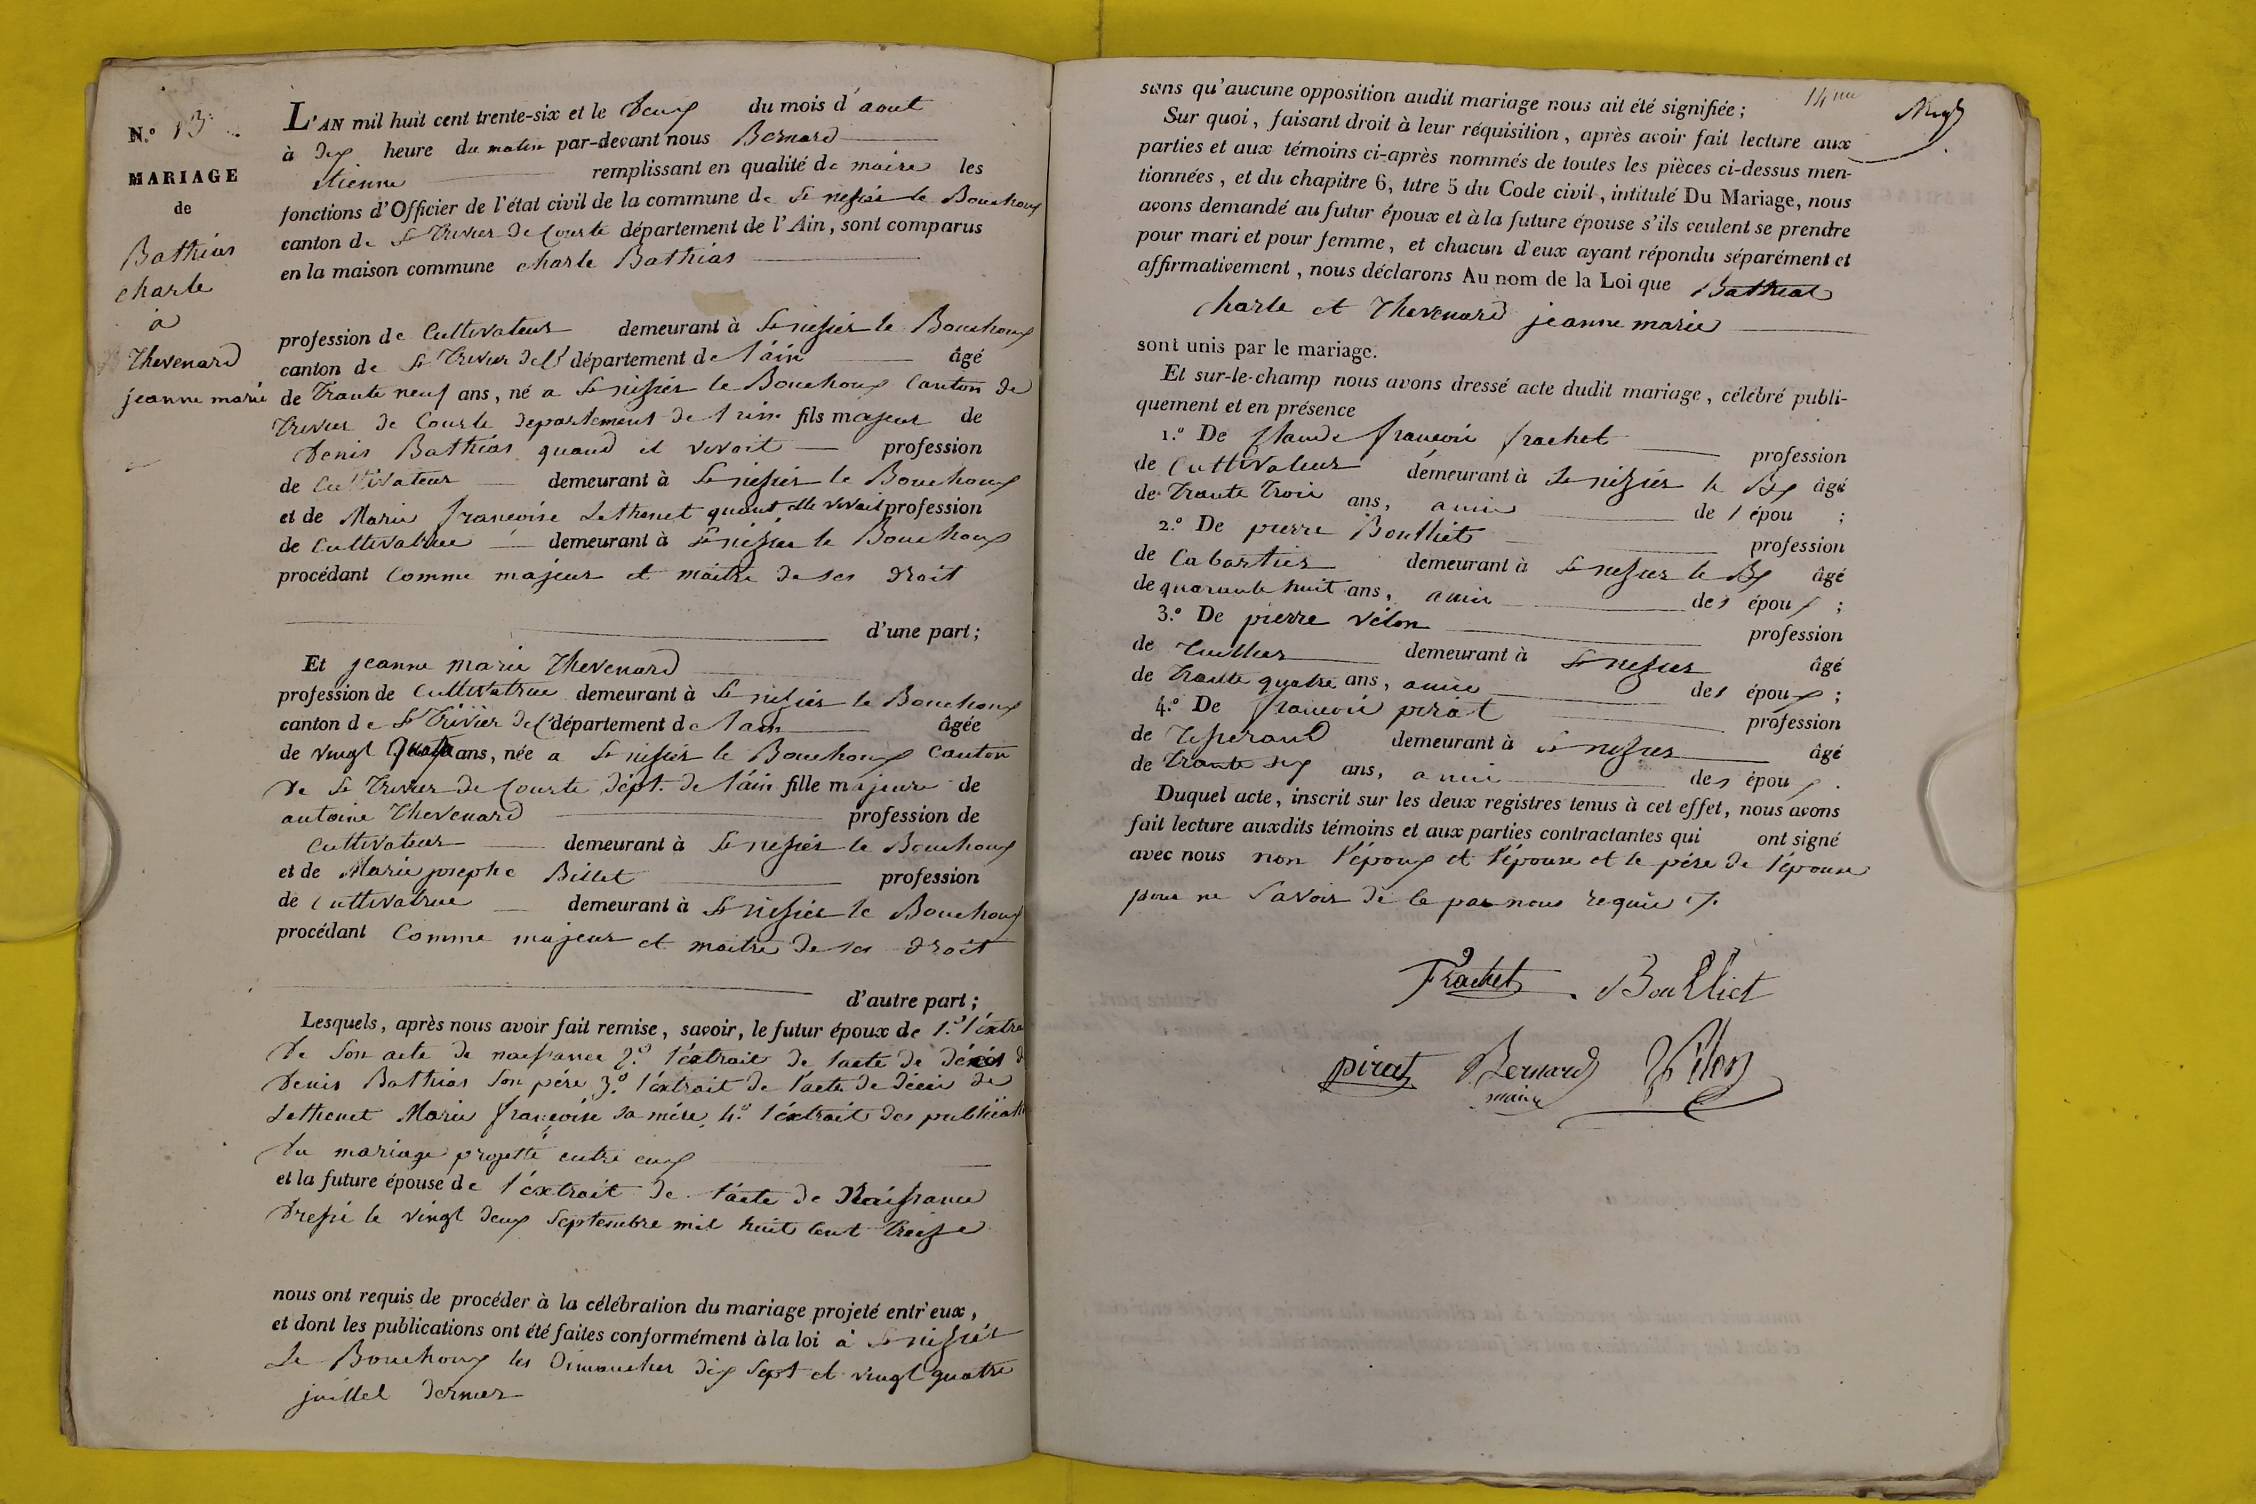 N.° 13
MARIAGE
de
Bathias
charle
a
Thevenard
jeanne marie
L'AN mil huit cent trente-six et le deux du mois d'aout
à dix heure du matin par-devant nous Bernard
etienne remplissant en qualité de maire les
fonctions d'Officier de l'état civil de la commune de St nizier le Bouchoux
canton de St Trivier de Courte département de l'Ain, sont comparus
en la maison commune charle Bathias
profession de Cultivateur demeurant à St nizier le Bouchoux
canton de St Trivier de Ct département de l'ain âgé
de Trante neuf ans, né a St nizier le Bouchoux Canton de
Trivier de Courte departement de l'ain fils majeur de
Denis Bathias quand il vivoit profession
de Cultivateur demeurant à St nizier le Bouchoux
et de Marie françoise Lethenet quant elle vivait profession
de Cultivatrice demeurant à St nizier le Bouchoux
procédant Comme majeur et maitre de ses droit
d'une part;
Et jeanne marie Thevenard
profession de Cultivatrice demeurant à St nizier le Bouchoux
canton de St Trivier de Ct département de l'ain âgée
de vingt quatre ans, née a St nizier le Bouchoux Canton
de St Trivier de Courte dépt. de l'ain fille majeure de
antoine Thevenard profession de
Cultivateur demeurant à St nizier le Bouchoux
et de Marie josephe Billet profession
de Cultivatrice demeurant à St nizier le Bouchoux
procédant Comme majeur et maitre de ses droit
d'autre part;
Lesquels, après nous avoir fait remise, savoir, le futur époux de 1.° l'éxtra
de son acte de naissance 2.° l'éxtrait de l'acte de décés d
Denis Bathias son pére 3.° l'éxtrait de l'acte de décés de
Lethenet Marie françoise sa mére, 4.° l'éxtrait des publicati
du mariage projetté entre eux
et la future épouse de l'éxtrait de l'acte de Naissance
dressé le vingt deux septembre mil huit Cent Treize
nous ont requis de procéder à la célébration du mariage projeté entr'eux,
et dont les publications ont été faites conformément à la loi à St nizier
Le Bouchoux les Dimanches dix sept et vingt quatre
juillet dernier
sans qu'aucune opposition audit mariage nous ait été signifiée;
14me
Sur quoi, faisant droit à leur réquisition, après avoir fait lecture aux
parties et aux témoins ci-après nommés de toutes les pièces ci-dessus men-
tionnées, et du chapitre 6, titre 5 du Code civil, intitulé Du Mariage, nous
avons demandé au futur époux et à la future épouse s'ils veulent se prendre
pour mari et pour femme, et chacun d'eux ayant répondu séparément et
affirmativement, nous déclarons Au nom de la Loi que Bathias
charle et Thevenard jeanne marie
sont unis par le mariage.
Et sur-le-champ nous avons dressé acte dudit mariage, célébré publi-
quement et en présence
1.° De Claude françois frachet profession
de Cultivateur demeurant à St nizier le Bx âgé
de Trante Trois ans, amie de l épou ;
2.° De pierre Boulliet profession
de Cabartier demeurant à St nizier le Bx âgé
de quarante huit ans, amie des époux ;
3.° De pierre vélon profession
de Tuillier demeurant à St nizier âgé
de Trante quatre ans, amie des époux ;
4.° De françois pirat profession
de Tisserand demeurant à St nizier âgé
de Trante six ans, amie des époux .
Duquel acte, inscrit sur les deux registres tenus à cet effet, nous avons
fait lecture auxdits témoins et aux parties contractantes qui ont signé
avec nous non l'époux et l'épouse et le pére de l'épouse
pour ne savoir de le par nous requis
Frachet Boulliet
pirat Bernard Vélon
maire